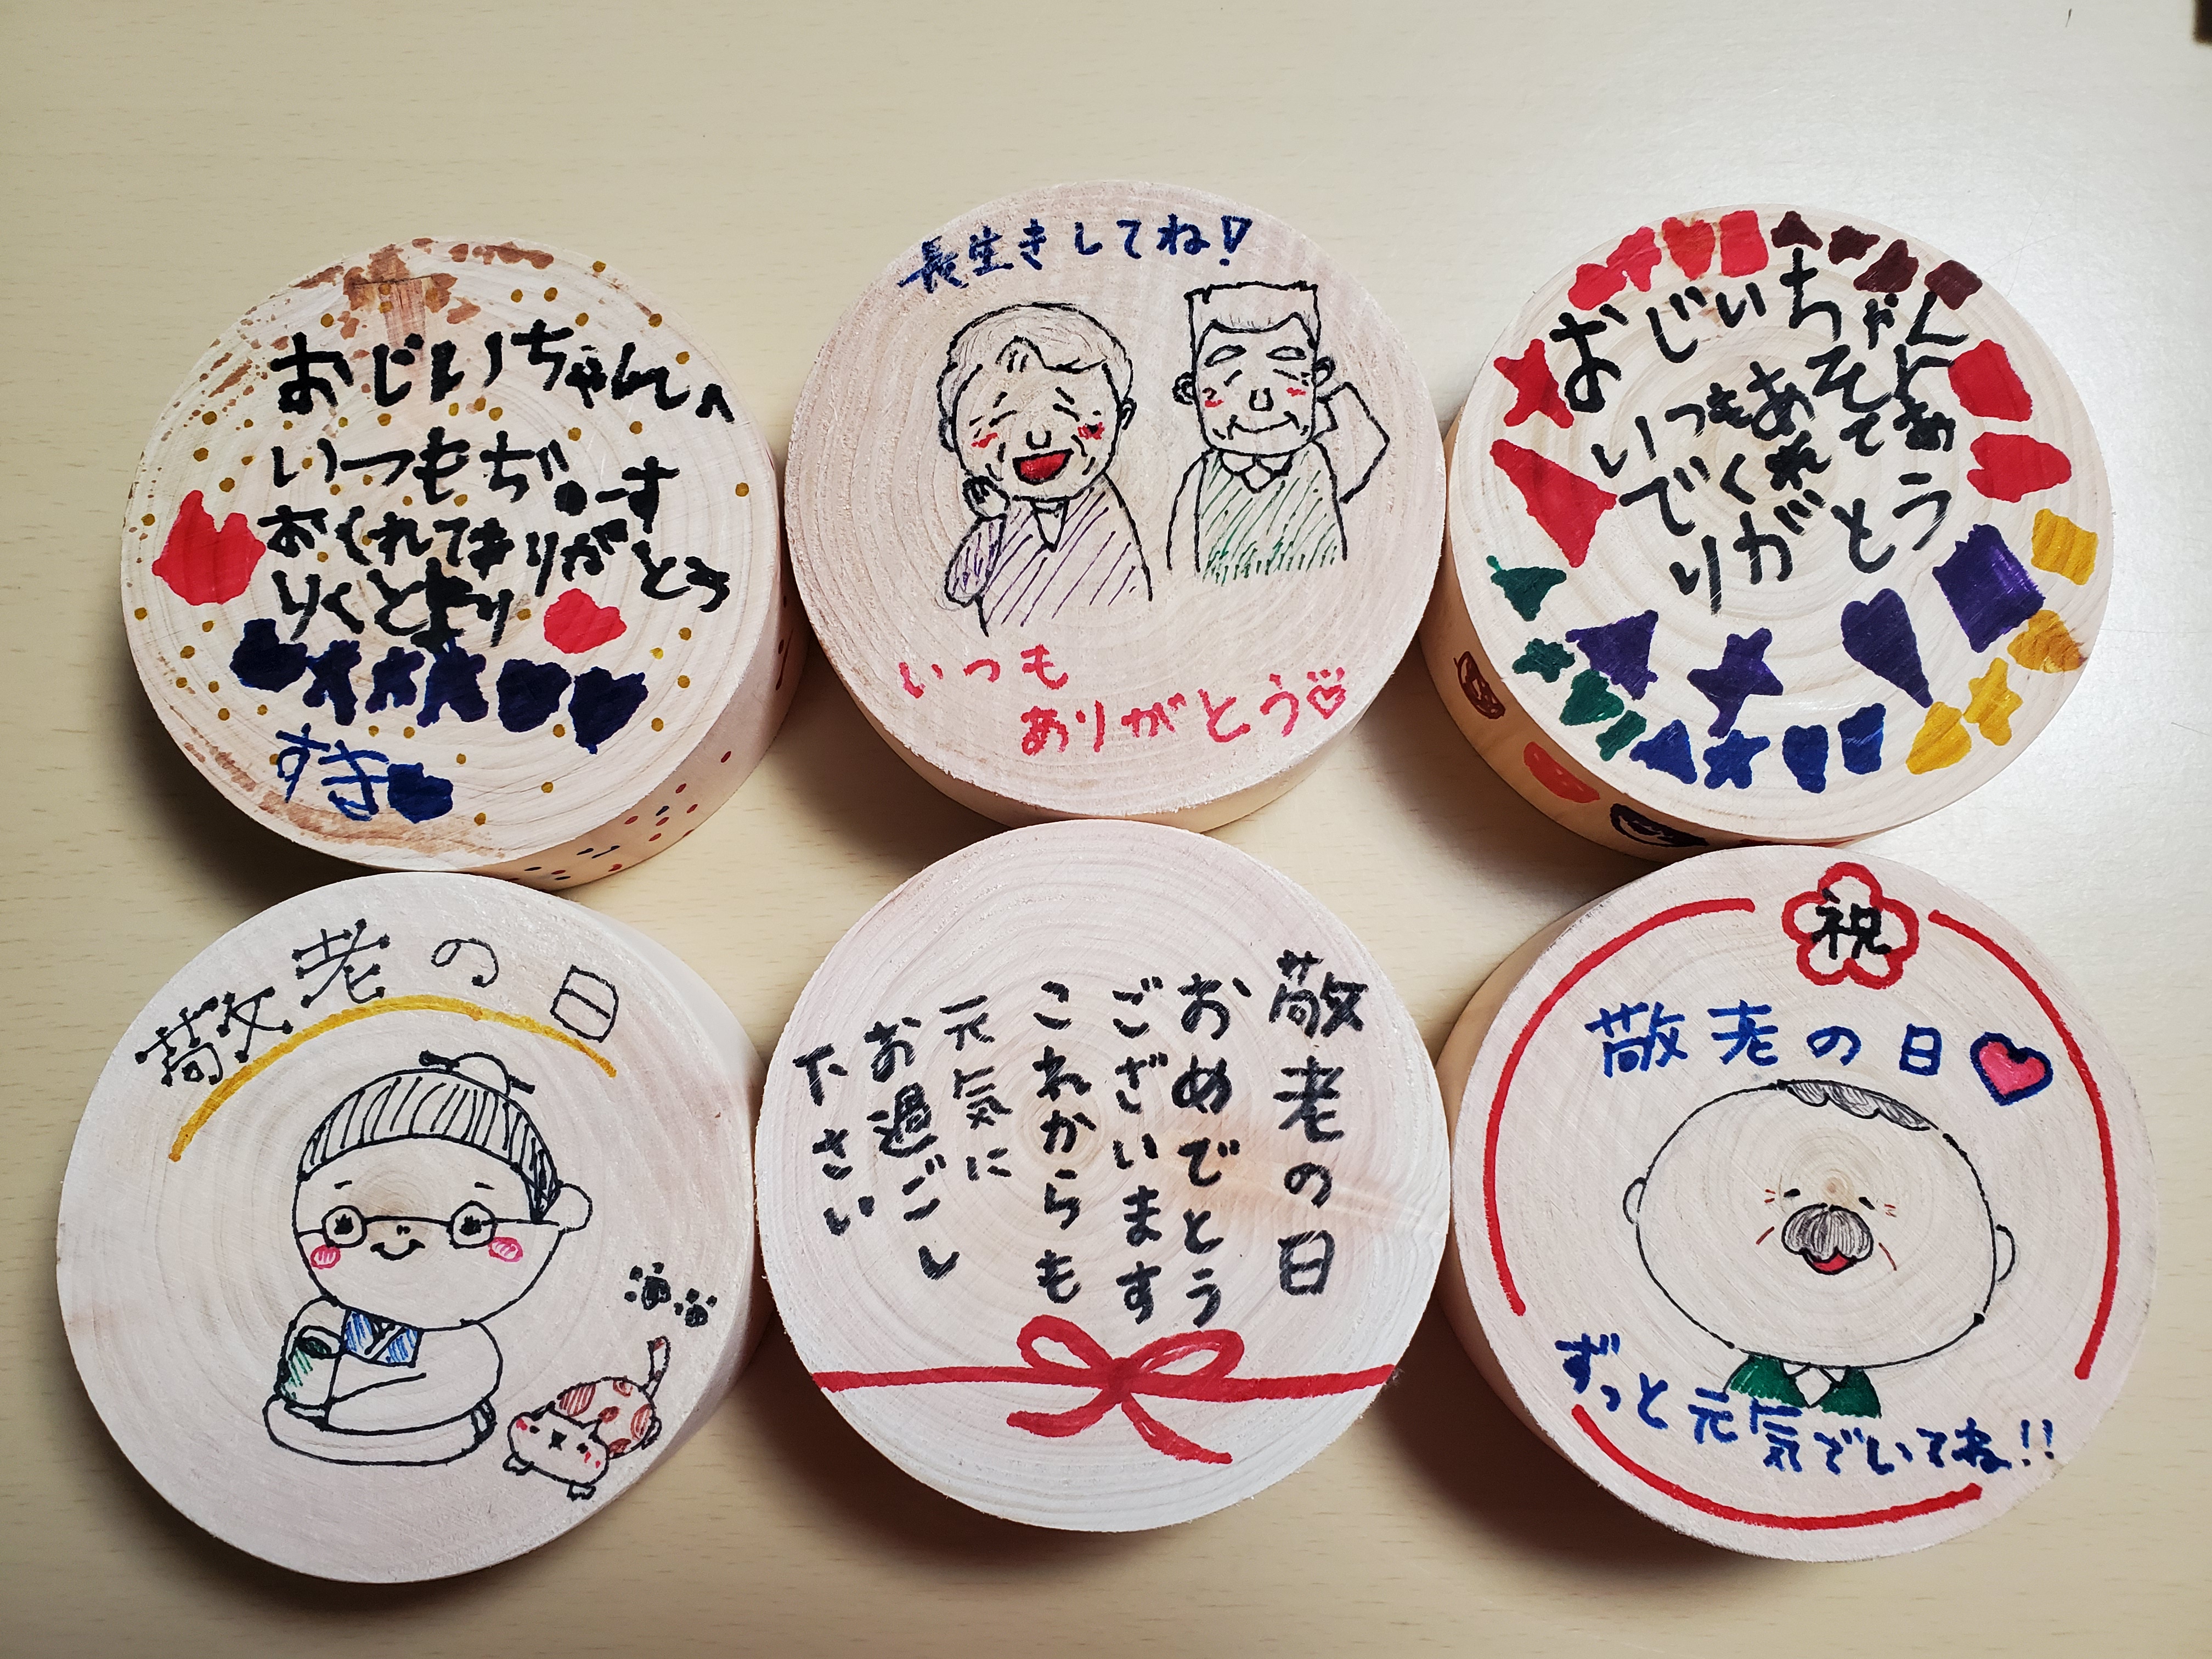 おじいちゃんへ
いつもぢゅーす
おくれてありがとう
りくとより
すき
長生きしてね!
いつも
ありがとう
おじいちゃん
いつもあそん
でくれてあ
りがとう
敬老の日
敬老の日
おめでとう
ございます
これからも
元気に
お過ごし
下さい
祝
敬老の日
ずっと元気でいてね!!